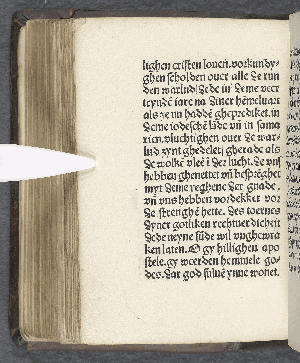 lighen cristen louen. vorkundy⸗
ghen scholden ouer alle de run
den warlud dede in deme veer
teynde iare na diner hemeluart
als ze vn hadde gheprediket in
deme iodeschē lāde vn̄ in sama
rien. vluchtighen ouer de war⸗
lud zynt ghedelet. gherade als
de wolkē vleē ī der lucht. de vns
hebben ghenettet vn̄ besprēghet
myt deme reghene der gnade.
vn̄ vns hebben vordekket vor
de strenghe hette. des toernes
dyner gotliken rechtuerdicheit
dede neyne sūde wil vnghewra
ken laten. O gy hillighen apo
stele. gy weerden hemmele go⸗
des. dar god sulue ynne wonet.